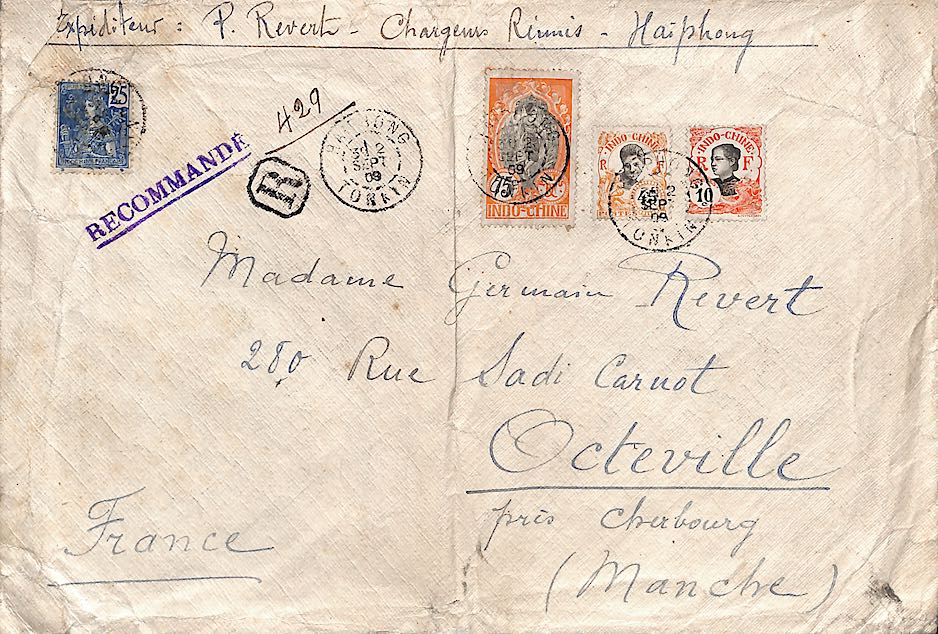 Expéditeur : P. Revert - Chargeurs Réunis - Haïphong
25
RECOMMANDÉ
429
R
HAIPHONG
12
SEPT
09
TONKIN
75
INDO-CHINE
INDO-CHINE
R F
45
12
SEP
09
TONKIN
INDO-CHINE
R F
10
Madame Germain Revert
280 Rue Sadi Carnot
Octeville
près Cherbourg
(Manche)
France